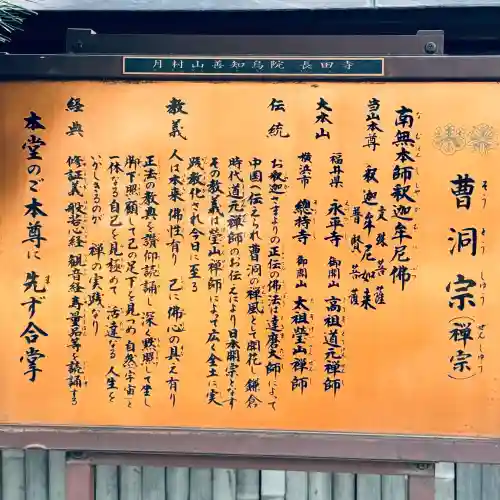 月村山善知鳥院 長田寺
曹洞宗(禅宗)
そうとうしゅう ぜんしゅう
南無本師釈迦牟尼佛
当山本尊 釈迦牟尼如来
文殊菩薩
普賢菩薩
大本山 福井県 永平寺 御開山 高祖道元禅師
横浜市 總持寺 御開山 太祖瑩山禅師
伝統 お釈迦さまよりの正伝の佛法は達磨大師によって
中國へ伝えられ曹洞の禅風として開花し鎌倉
時代道元禅師のお伝えにより日本開宗となす
その教義は瑩山禅師によって広く全土に実
践教化され今日に至る
教義 人は本来佛性有り 己に佛心の具え有り
正法の教典を讃仰読誦し深く黙照して坐し
脚下照顧して己の足下を見つめ自然宇宙と
一体なる自己を見極めて 活達なる人生を
いかしきるのが 禅の実践なり
経典 修証義 般若心経 観音経 寿量品等を読誦する
本堂のご本尊に先ず合掌